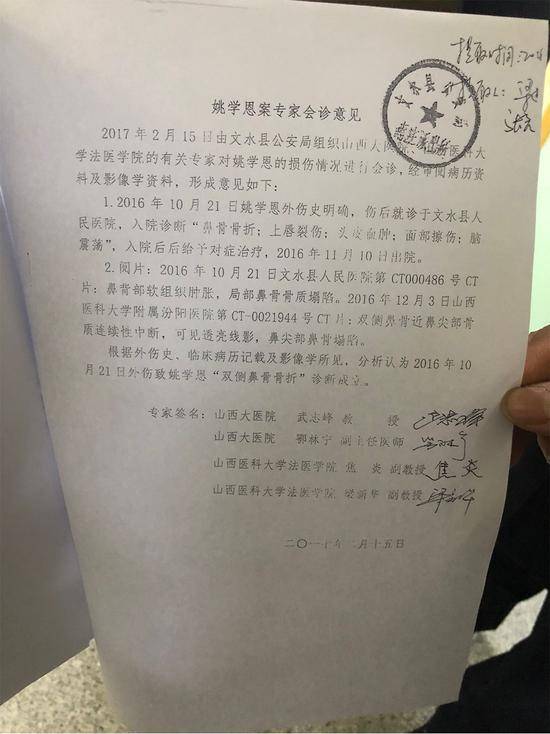 提取时间:
提取人:
文水县
姚学恩案专家会诊意见
2017年2月15日由文水县公安局组织山西大医院、山西医科大
学法医学院的有关专家对姚学恩的损伤情况进行会诊,经审阅病历资
料及影像学资料,形成意见如下:
1.2016年10月21日姚学恩外伤史明确,伤后就诊于文水县人
民医院,入院诊断“鼻骨骨折;上唇裂伤;头皮血肿;面部擦伤;脑
震荡”,入院后后给予对症治疗,2016年11月10日出院。
2.阅片:2016年10月21日文水县人民医院第CT000486号CT
片:鼻背部软组织肿胀,局部鼻骨骨质塌陷。2016年12月3日山西
医科大学附属汾阳医院第CT-0021944号CT片:双侧鼻骨近鼻尖部骨
质连续性中断,可见透亮线影,鼻尖部鼻骨塌陷。
根据外伤史、临床病历记载及影像学所见,分析认为2016年10
月21日外伤致姚学恩“双侧鼻骨骨折”诊断成立。
专家签名:山西大医院 武志峰 教 授
山西大医院 鄂林宁 副主任医师
山西医科大学法医学院 焦 炎 副教授 焦炎
山西医科大学法医学院 梁新华 副教授
二〇一七年二月十五日